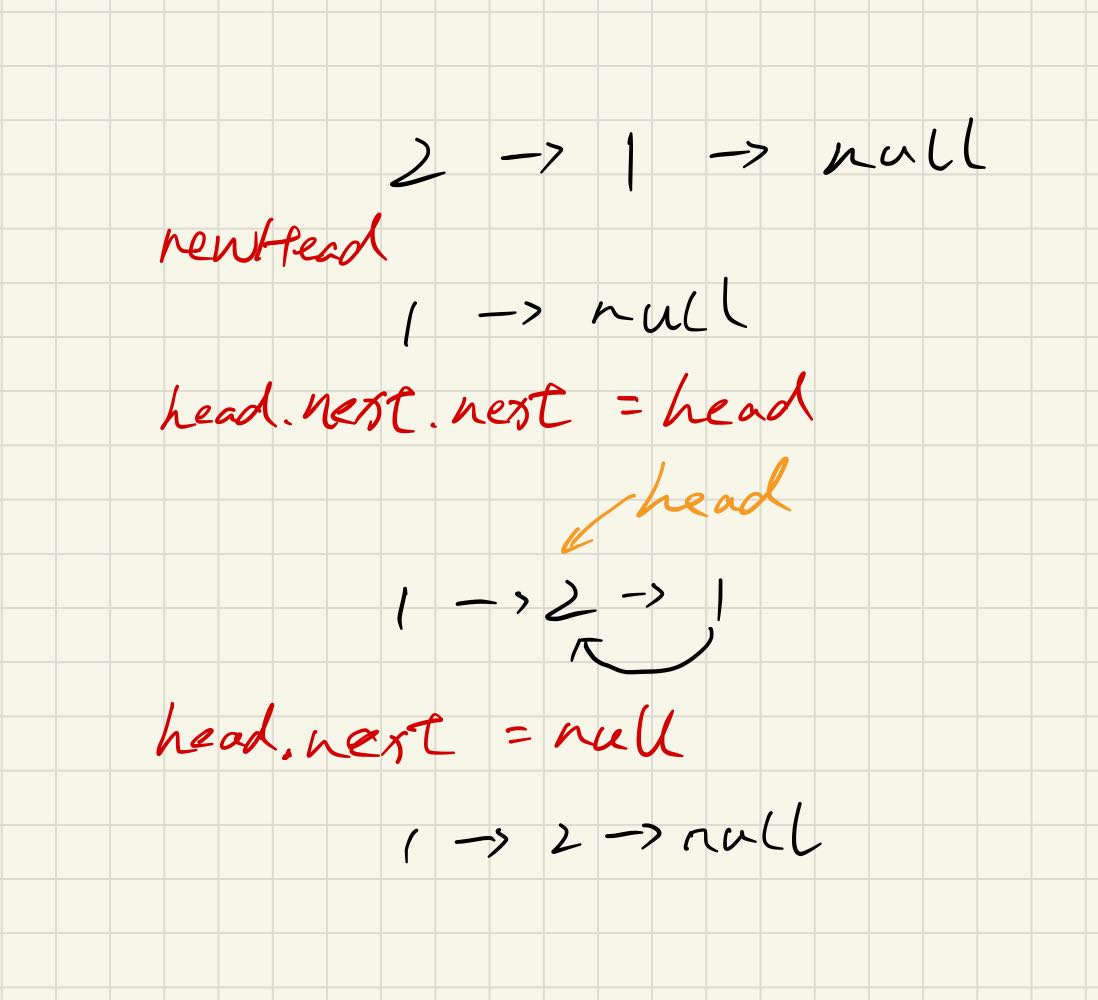 2 → 1 → null
newHead
1 → null
head.next.next = head
head
1 → 2 → 1
head.next = null
1 → 2 → null